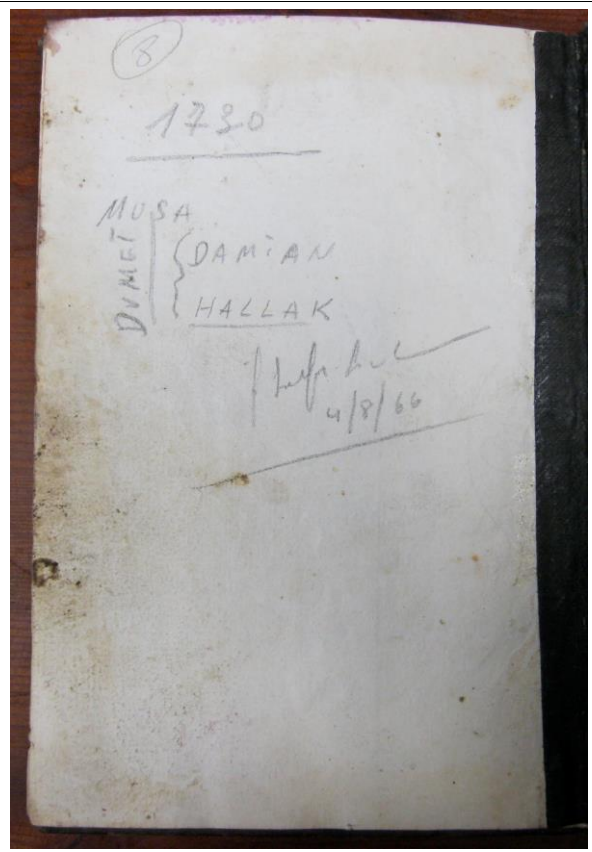 8
1730
MUSA
DUMET
DAMiAN
HALLAK
4/8/66